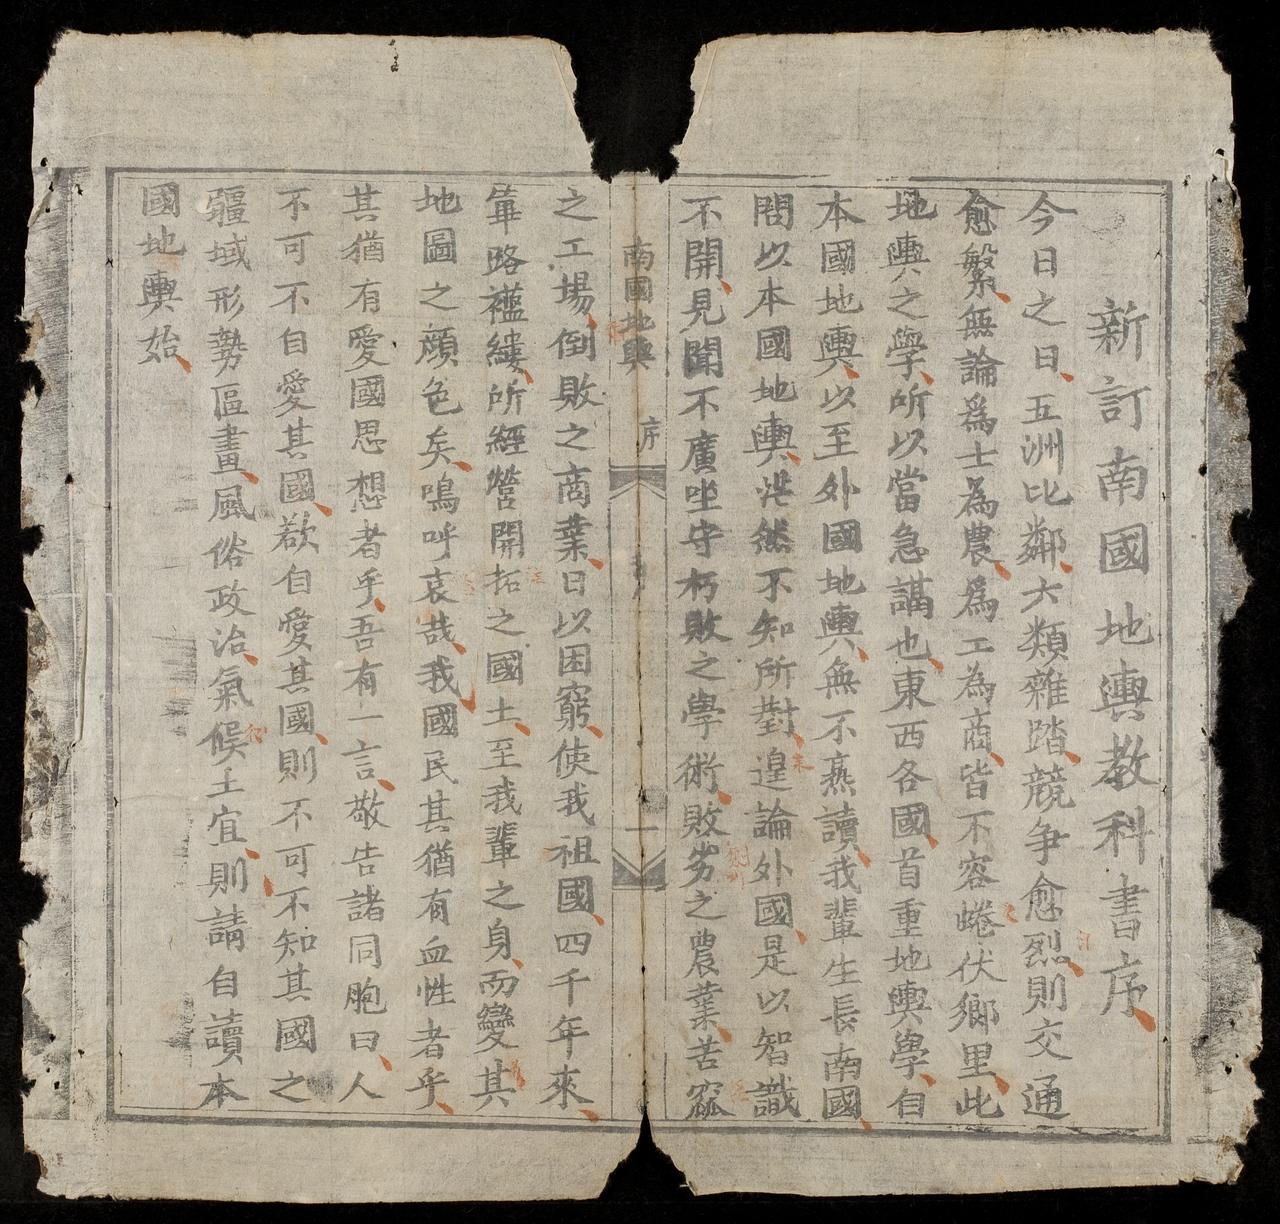 新訂南國地輿教科書序
今日之日五洲比鄰六類雜踏競争愈烈則交通
愈繁無論爲士為農爲工為商皆不容蜷伏鄉里此
地輿之學所以當急講也東西各國首重地輿學自
本國地輿以至外國地輿無不熹讀我輩生長南國
問以本國地輿茫然不知所對遑論外國是以智識
不開見聞不廣坐守朽敗之學術敗劣之農業苦窳
南國地輿 序 一
之工場倒敗之商業日以困窮使我祖國四千年來
篳路襤縷所經營開拓之國土至我輩之身而變其
地圖之顔色矣嗚呼哀哉我國民其猶有血性者乎
其猶有愛國思想者乎吾有一言敬告諸同胞曰人
不可不自愛其國欲自愛其國則不可不知其國之
疆域形勢區畫風俗政治氣候土宜則請自讀本
國地輿始